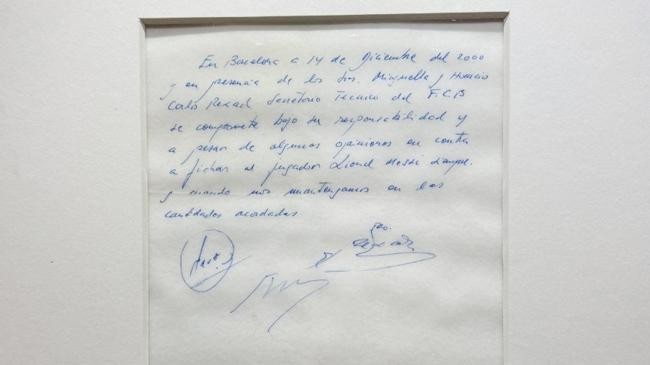 En Barcelona a 14 de Diciembre del 2000
y en presencia de los Sres. Minguella y Horacio
Carles Rexach Secretario Técnico del F.C.B
se compromete bajo su responsabilidad y
a pesar de algunas opiniones en contra
a fichar al jugador Lionel Messi siempre
y cuando nos mantengamos en las
cantidades acordadas